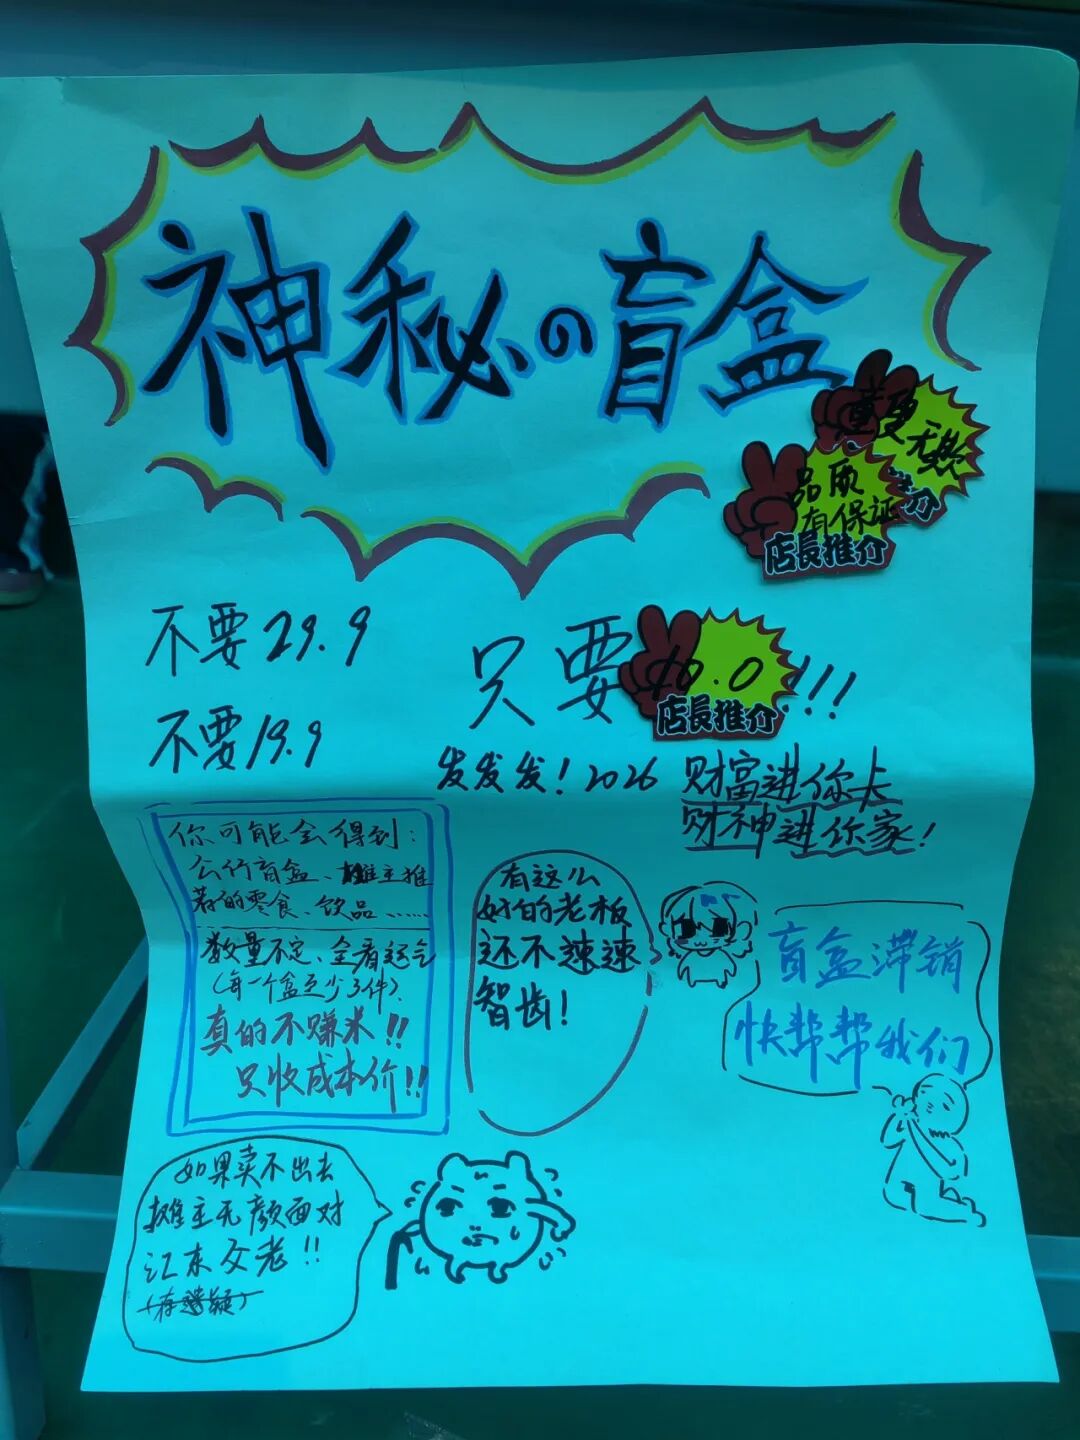 神秘の盲盒
童叟无欺
品质
有保证
店長推介
不要29.9
只要10.0!!!
店長推介
不要19.9
发发发!2026
财富进你卡
财神进你家!
你可能会得到:
公仔盲盒、摊主推
荐的零食、饮品……
数量不定、全看运气
(每一个盒至少3件)
真的不赚米!!
只收成本价!!
有这么
好的老板
还不速速
智齿!
盲盒滞销
快帮帮我们
如果卖不出去
摊主无颜面对
江东父老!!